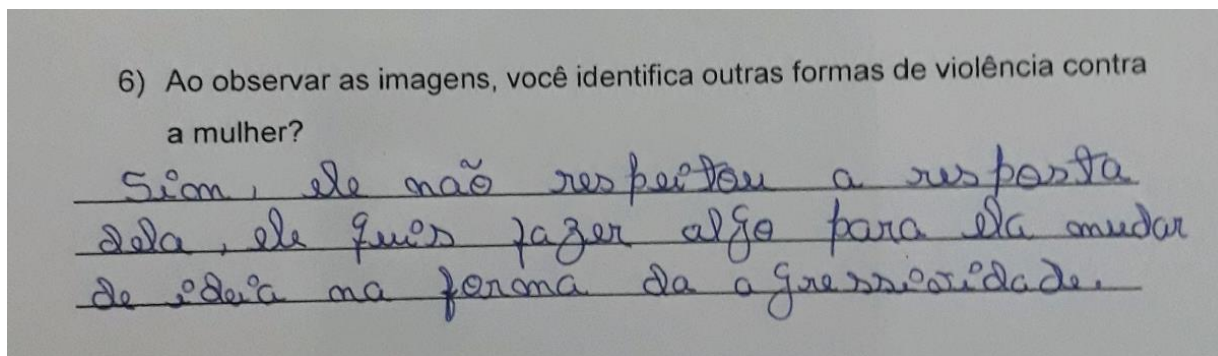 6) Ao observar as imagens, você identifica outras formas de violência contra
a mulher?
Sim, ele não respeitou a resposta
dela, ele quis fazer algo para ela mudar
de ideia na forma da agressividade.